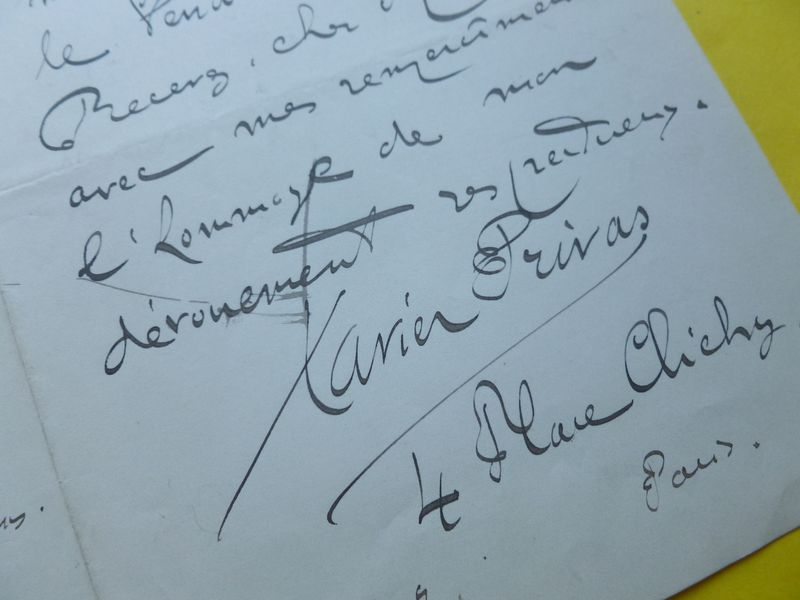 le
Recevez, cher
avec mes remerciements
l'hommage de mon
dévouement respectueux.
Xavier Privas
4 Place Clichy
Paris.